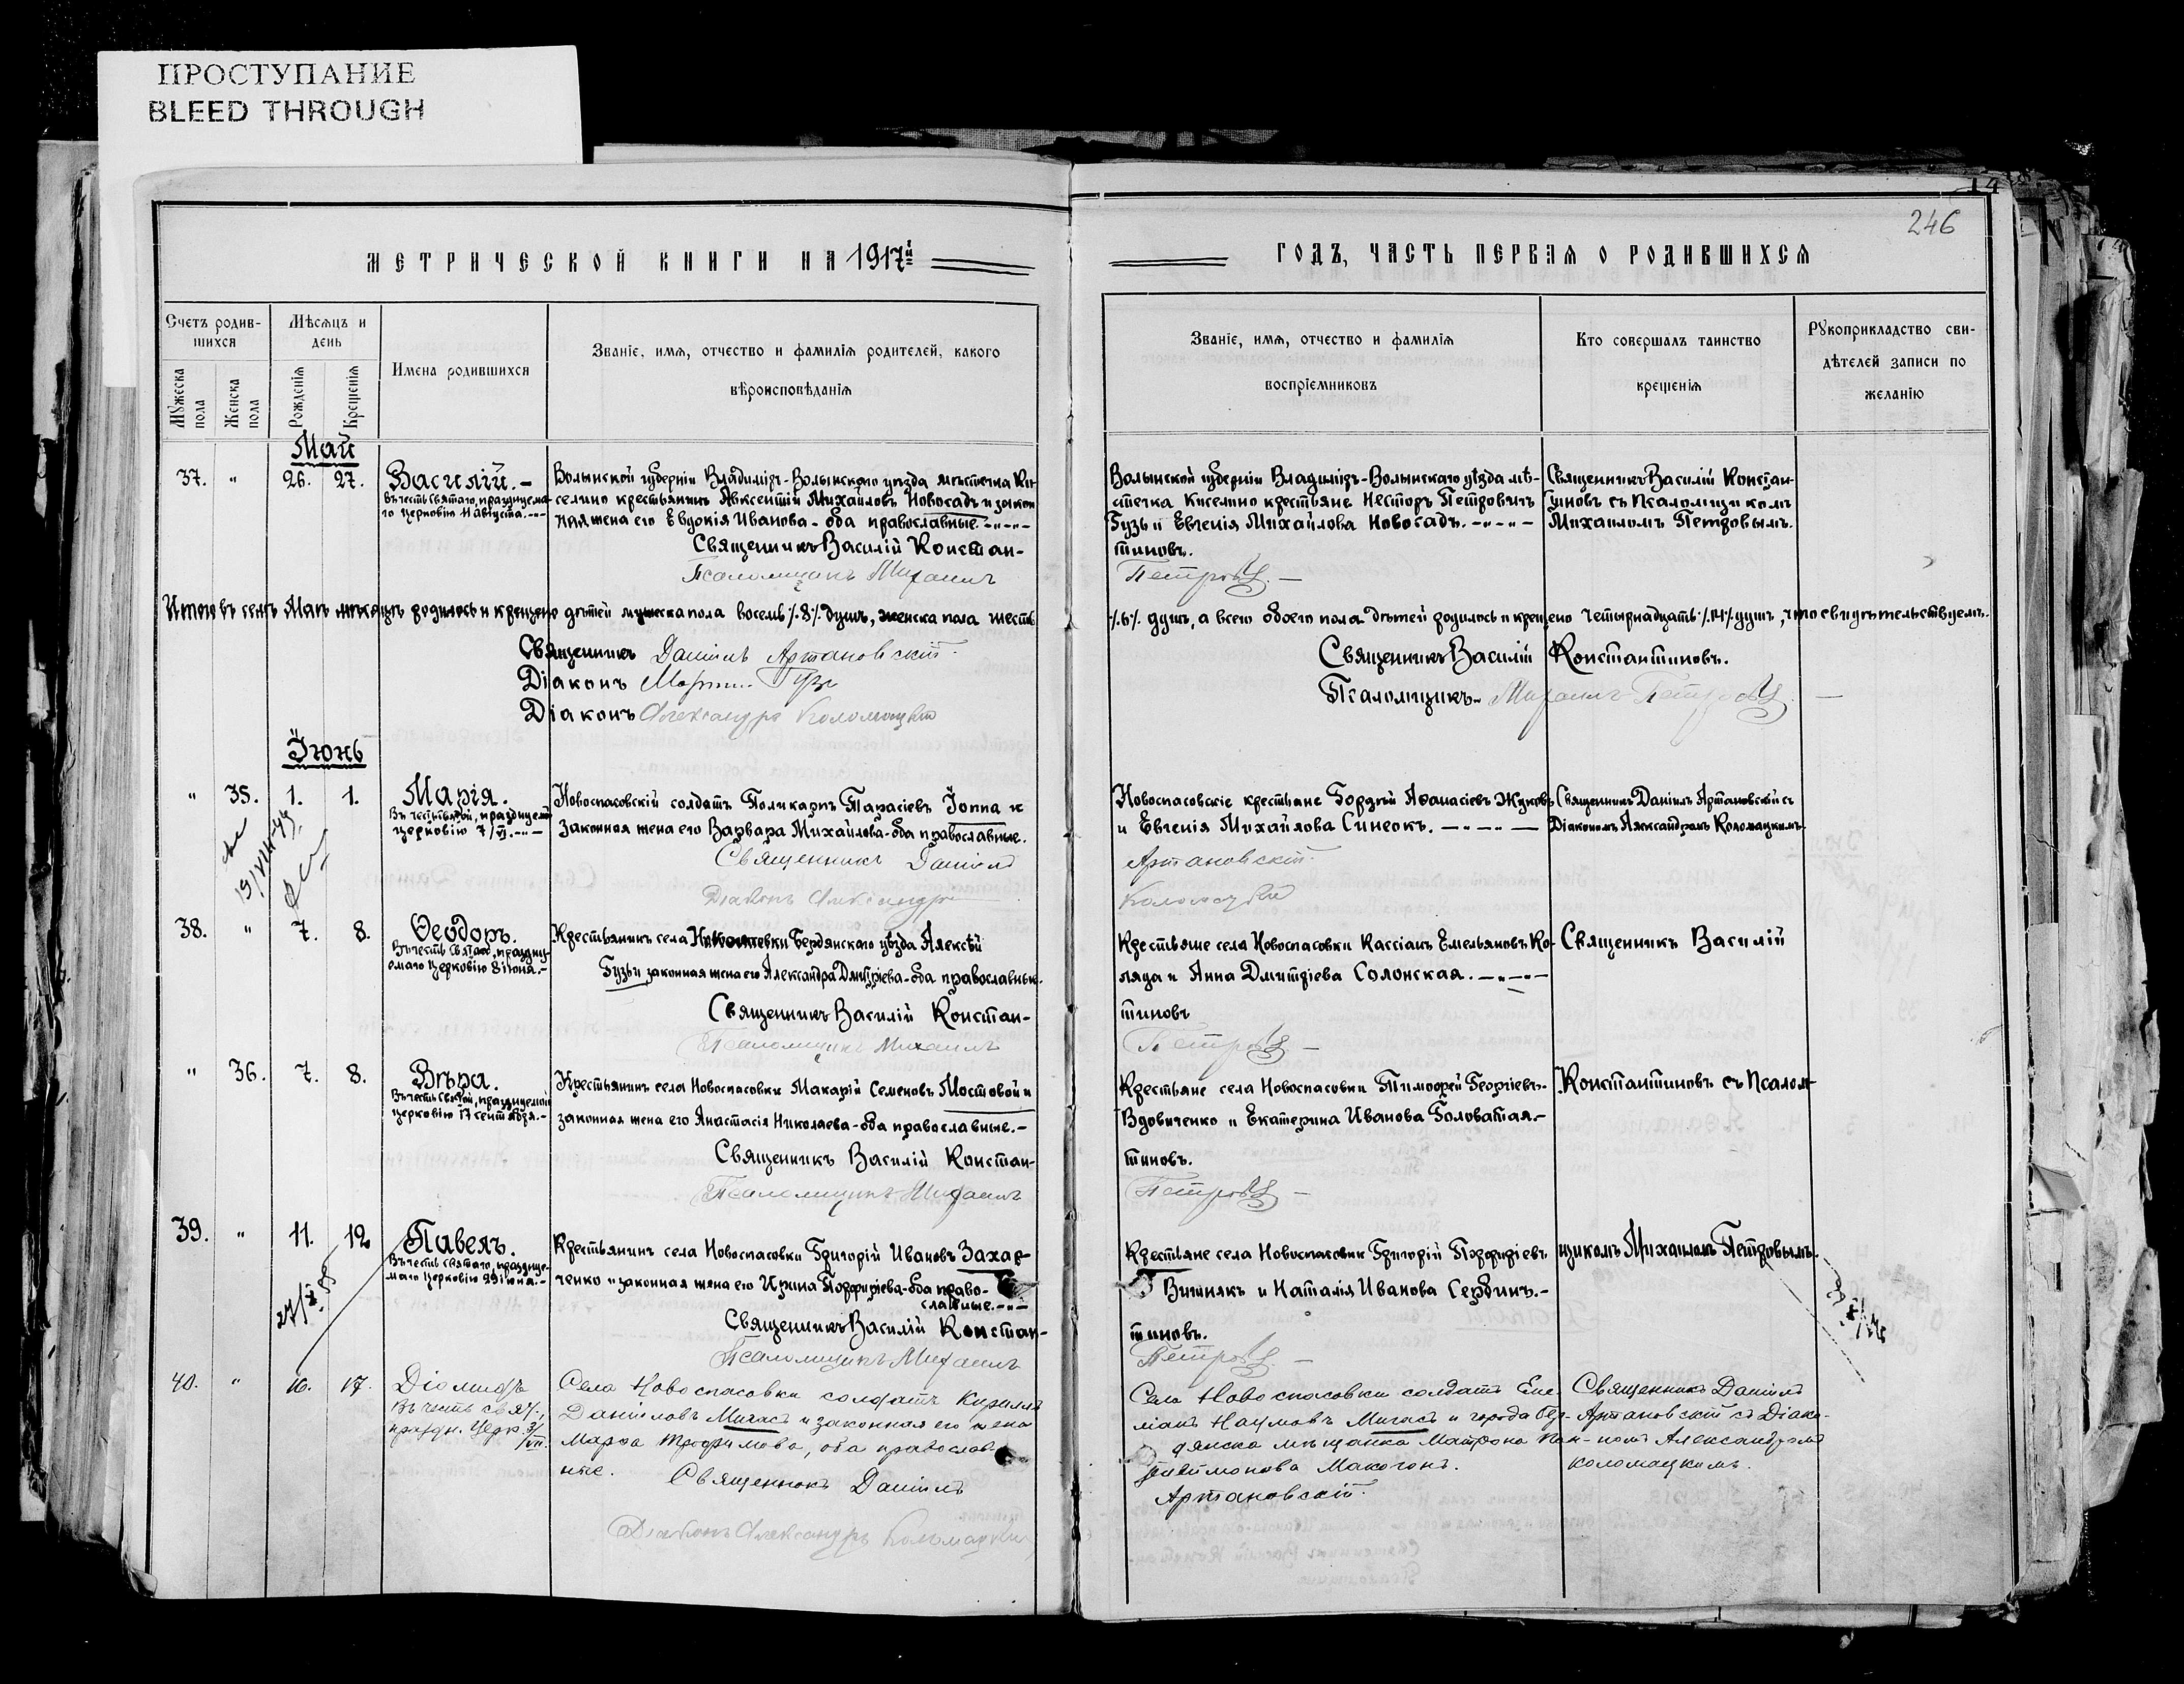 ПРОСТУПАНИЕ
BLEED THROUGH
14
246
МЕТРИЧЕСКОЙ КНИГИ НА 1917й
ГОДЪ, ЧАСТЬ ПЕРВАЯ О РОДИВШИХСЯ
Счетъ родив-
шихся
Мужеска пола
Женска пола
Мѣсяцъ и
день
Рожденія
Крещенія
Имена родившихся
Званіе, имя, отчество и фамилія родителей, какого
вѣроисповѣданія
Званіе, имя, отчество и фамилія
воспріемниковъ
Кто совершалъ таинство
крещенія
Рукоприкладство сви-
дѣтелей записи по
желанію
Май
37. " 26. 27. Василій.-
Въ честь святаго, празднуема-
го церковію 11 августа.
Волынской губерніи Владиміръ-Волынскаго уѣзда мѣстечка Ки-
селино крестьянинъ Авксентій Михайловъ Новосадъ и закон
ная жена его Евдокія Иванова - оба православные.
Священникъ Василій Констан-
Псаломщикъ Михаилъ
Волынской губерніи Владиміръ-Волынскаго уѣзда мѣ-
стечка Киселино крестьяне Несторъ Петровичъ
Гузь и Евгенія Михайлова Новосадъ.
тиновъ.
Петровъ.
Священникъ Василій Констан-
тиновъ съ Псаломщикомъ
Михаиломъ Петровымъ.
Итого въ семъ Маѣ мѣсяцѣ родилось и крещено дѣтей мужеска пола восемь /.8/. душъ, женска пола шесть
/.6/. душъ, а всего обоего пола дѣтей родилось и крещено четырнадцать /.14/. душъ, что свидѣтельствуемъ.
Священникъ Даніилъ Артановскій.
Діаконъ Гузь
Діаконъ Александръ Коломацкій
Священникъ Василій Константиновъ.
Псаломщикъ Михаилъ Петровъ.
Іюнь
" 35. 1. 1. Марія.
Въ честь святой, празднуемой
церковію
Новоспасовскій солдатъ Поликарпъ Тарасіевъ Іопна и
законная жена его Варвара Михайлова - оба православные.
Священникъ Даніилъ
Діаконъ Александръ
Новоспасовскіе крестьяне Гордѣй Аѳанасіевъ Жуковъ
и Евгенія Михайлова Синеокъ.
Артановскій.
Коломацкій
Священникъ Даніилъ Артановскій съ
Діакономъ Александромъ Коломацкимъ.
38. " 7. 8. Ѳеодоръ.
Въ честь святаго, праздну-
емаго церковію 8 іюня.-
Крестьянинъ села Новоспасовки Бердянскаго уѣзда Алексѣй
Гузь и законная жена его Александра Дмитріева - оба православные.
Священникъ Василій Констан-
Псаломщикъ Михаилъ
Крестьяне села Новоспасовки Кассіанъ Емельяновъ Ко-
ляда и Анна Дмитріева Солонская.
тиновъ
Петровъ.
Священникъ Василій
" 36. 7. 8. Вѣра.
Въ честь святой, празднуемой
церковію 17 сентября.-
Крестьянинъ села Новоспасовки Макарій Семеновъ Мостовой и
законная жена его Анастасія Николаева - оба православные.-
Священникъ Василій Констан-
Псаломщикъ Михаилъ
Крестьяне села Новоспасовки Тимоѳей Георгіевъ
Вдовиченко и Екатерина Иванова Головатая.-
тиновъ.
Петровъ
Константиновъ съ Псалом-
39. " 11. 12. Павелъ.
Въ честь святаго, праздну-
емаго церковію 29 іюня.-
Крестьянинъ села Новоспасовки Григорій Ивановъ Захар-
ченко и законная жена его Ирина Порфиріева - оба право-
славные.
Священникъ Василій Констан-
Псаломщикъ Михаилъ
Крестьяне села Новоспасовки Григорій Порфиріевъ
Вишнякъ и Наталія Иванова Сердинъ.-
тиновъ.
Петровъ.
щикомъ Михаиломъ Петровымъ.
40. " 16. 17. Діомидъ
Въ честь свят.,
праздн. Церк. 3/VII.
Села Новоспасовки солдатъ Кириллъ
Даніиловъ Мигасъ и законная его жена
Марѳа Трофимова, оба православ
ные.
Священникъ Даніилъ
Діаконъ Александръ Коломацкій
Села Новоспасовки солдатъ Еме
ліанъ Наумовъ Мигасъ и города Бер-
дянска мѣщанка Матрона Пан-
телимонова Макогонъ.
Артановскій.
Священникъ Даніилъ
Артановскій съ Діако-
номъ Александромъ
Коломацкимъ.